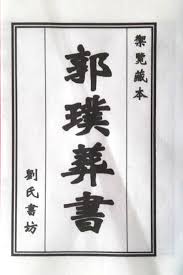 御覽藏本
郭璞葬書
劉氏書坊